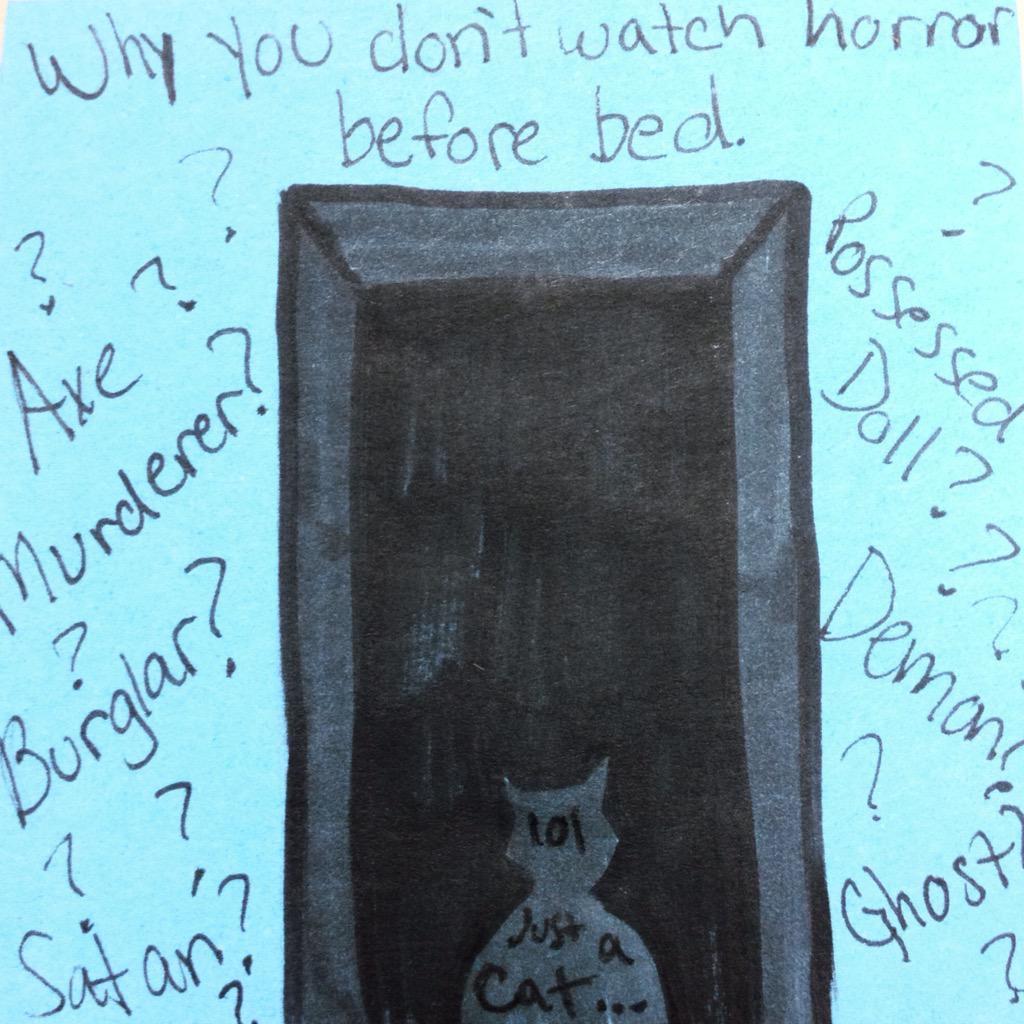 Why you don't watch horror
before bed.
Axe
Murderer?
Burglar?
Satan?
Possessed
Doll?
Demon?
Ghost?
lol
Just a
Cat...